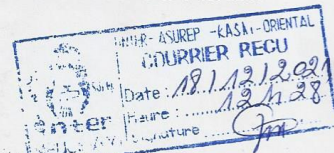 INTER- ASUREP -KASAI-ORIENTAL
COURRIER REÇU
Date : 18/12/2021
Heure : 12h.28
Signature
enter